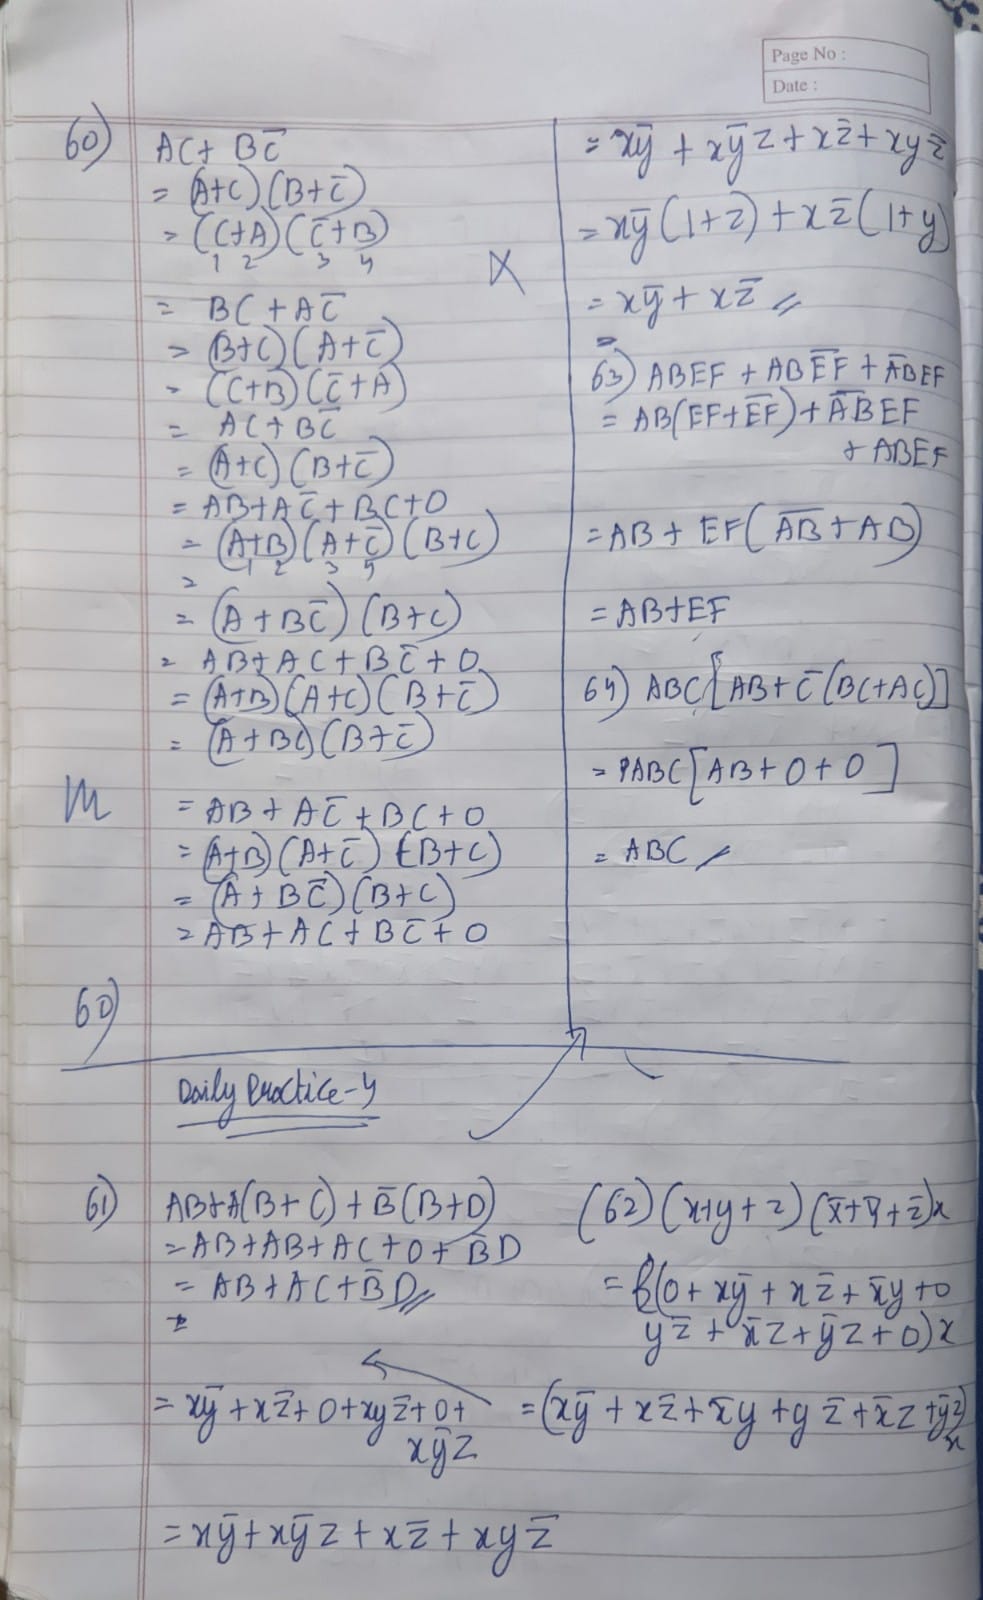 Page No :
Date :
60)
AC + BC̅
= (A+C)(B+C̅)
= (C+A)(C̅+B)
1 2 3 4
= BC + AC̅
= (B+C)(A+C̅)
= (C+B)(C̅+A)
= AC+BC̅
= (A+C)(B+C̅)
= AB+AC̅+BC+0
= (A+B)(A+C̅)(B+C)
1 2 3 4
=
= (A+BC̅)(B+C)
= AB+AC+BC̅+0
= (A+B)(A+C)(B+C̅)
= (A+BC)(B+C̅)
= AB+AC̅+BC+0
= (A+B)(A+C̅)(B+C)
= (A+BC̅)(B+C)
= AB+AC+BC̅+0
60)
= xy̅ + xy̅z + xz̅ + xyz̅
= xy̅(1+z) + xz̅(1+y)
= xy̅ + xz̅
=
63) ABEF + ABE̅F̅ + A̅B̅EF
= AB(EF+E̅F̅) + A̅B̅EF
+ ABEF
= AB + EF(A̅B̅ + AB)
= AB+EF
64) ABC[AB + C̅(BC+AC)]
= ABC[AB+0+0]
= ABC
Daily Practice-4
61) AB+A(B+C)+B̅(B+D)
= AB+AB+AC+0+B̅D
= AB+AC+B̅D
=
(62) (x+y+z)(x̅+y̅+z̅)x
= (0+xy̅+xz̅+x̅y+0
yz̅+x̅z+y̅z+0)x
= (xy̅+xz̅+x̅y+yz̅+x̅z+y̅z)
x
= xy̅+xz̅+0+xyz̅+0+
xy̅z
= xy̅+xy̅z+xz̅+xyz̅